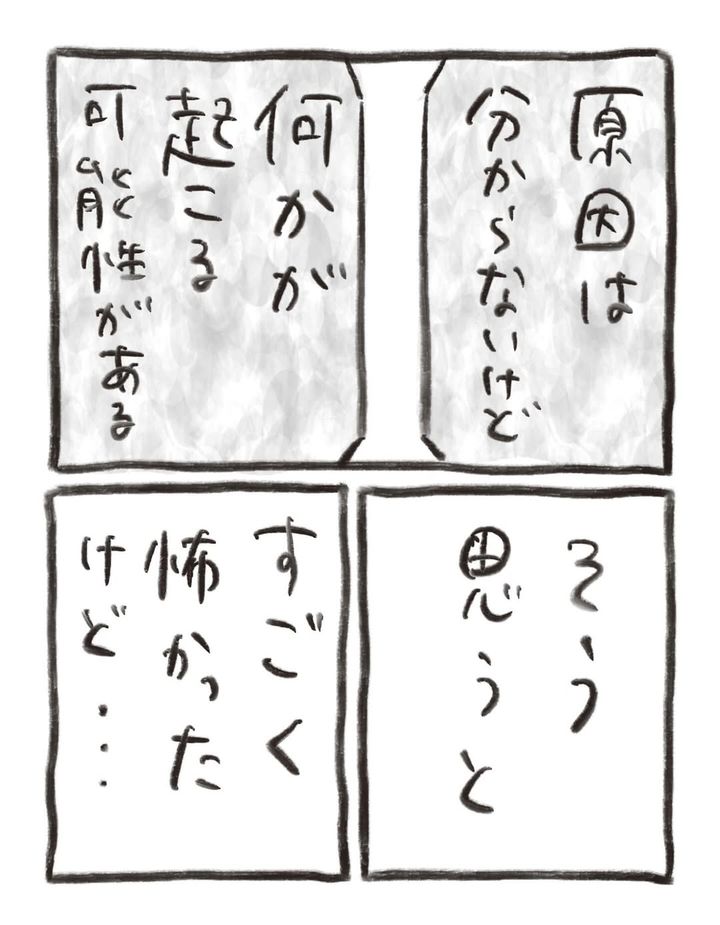 原因は
分からないけど
何かが
起こる
可能性がある
そう
思うと
すごく
怖かった
けど…